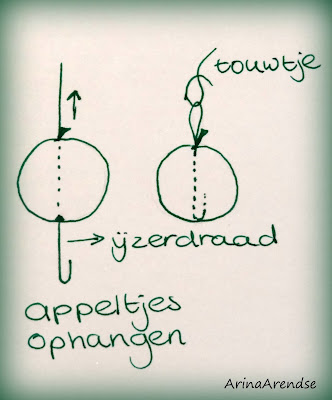 touwtje
ijzerdraad
appeltjes
ophangen
ArinaArendse